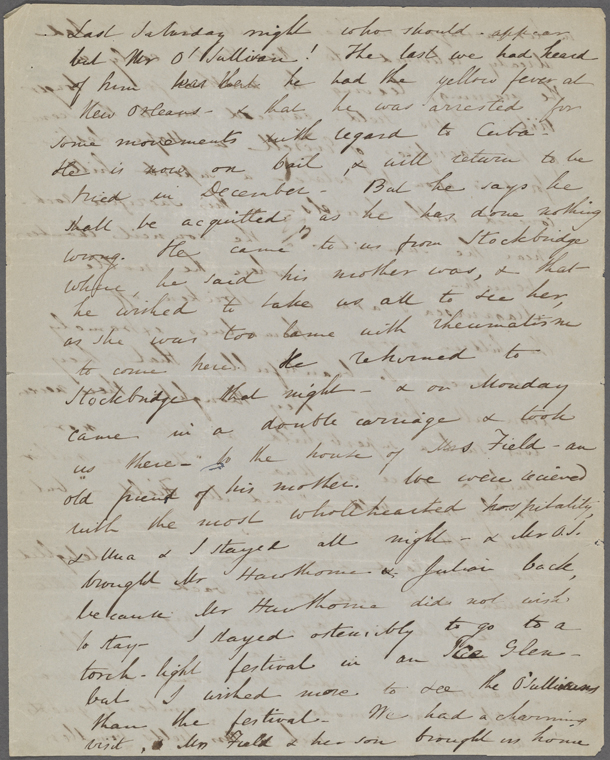 Last Saturday night who should appear
but Mr O'Sullivan! The last we had heard
of him was that he had the yellow fever at
New Orleans - & that he was arrested for
some movements with regard to Cuba -
He is now on bail, & will return to be
tried in December - But he says he
shall be acquitted, as he has done nothing
wrong. He came to us from Stockbridge
where, he said his mother was, & that
he wished to take us all to see her,
as she was too lame with rheumatism
to come here. He returned to
Stockbridge that night - & on Monday
came in a double carriage & took
us there - to the house of Mrs Field - an
old friend of his mother. We were recieved
with the most wholehearted hospitality,
& Una & I stayed all night - & Mr O'S.
brought Mr Hawthorne & Julian back,
because Mr Hawthorne did not wish
to stay - I stayed ostensibly to go to a
torch-light festival in an Ice Glen -
but I wished more to see the O'Sullivans
than the festival - We had a charming
visit, & Mrs Field & her son brought us home